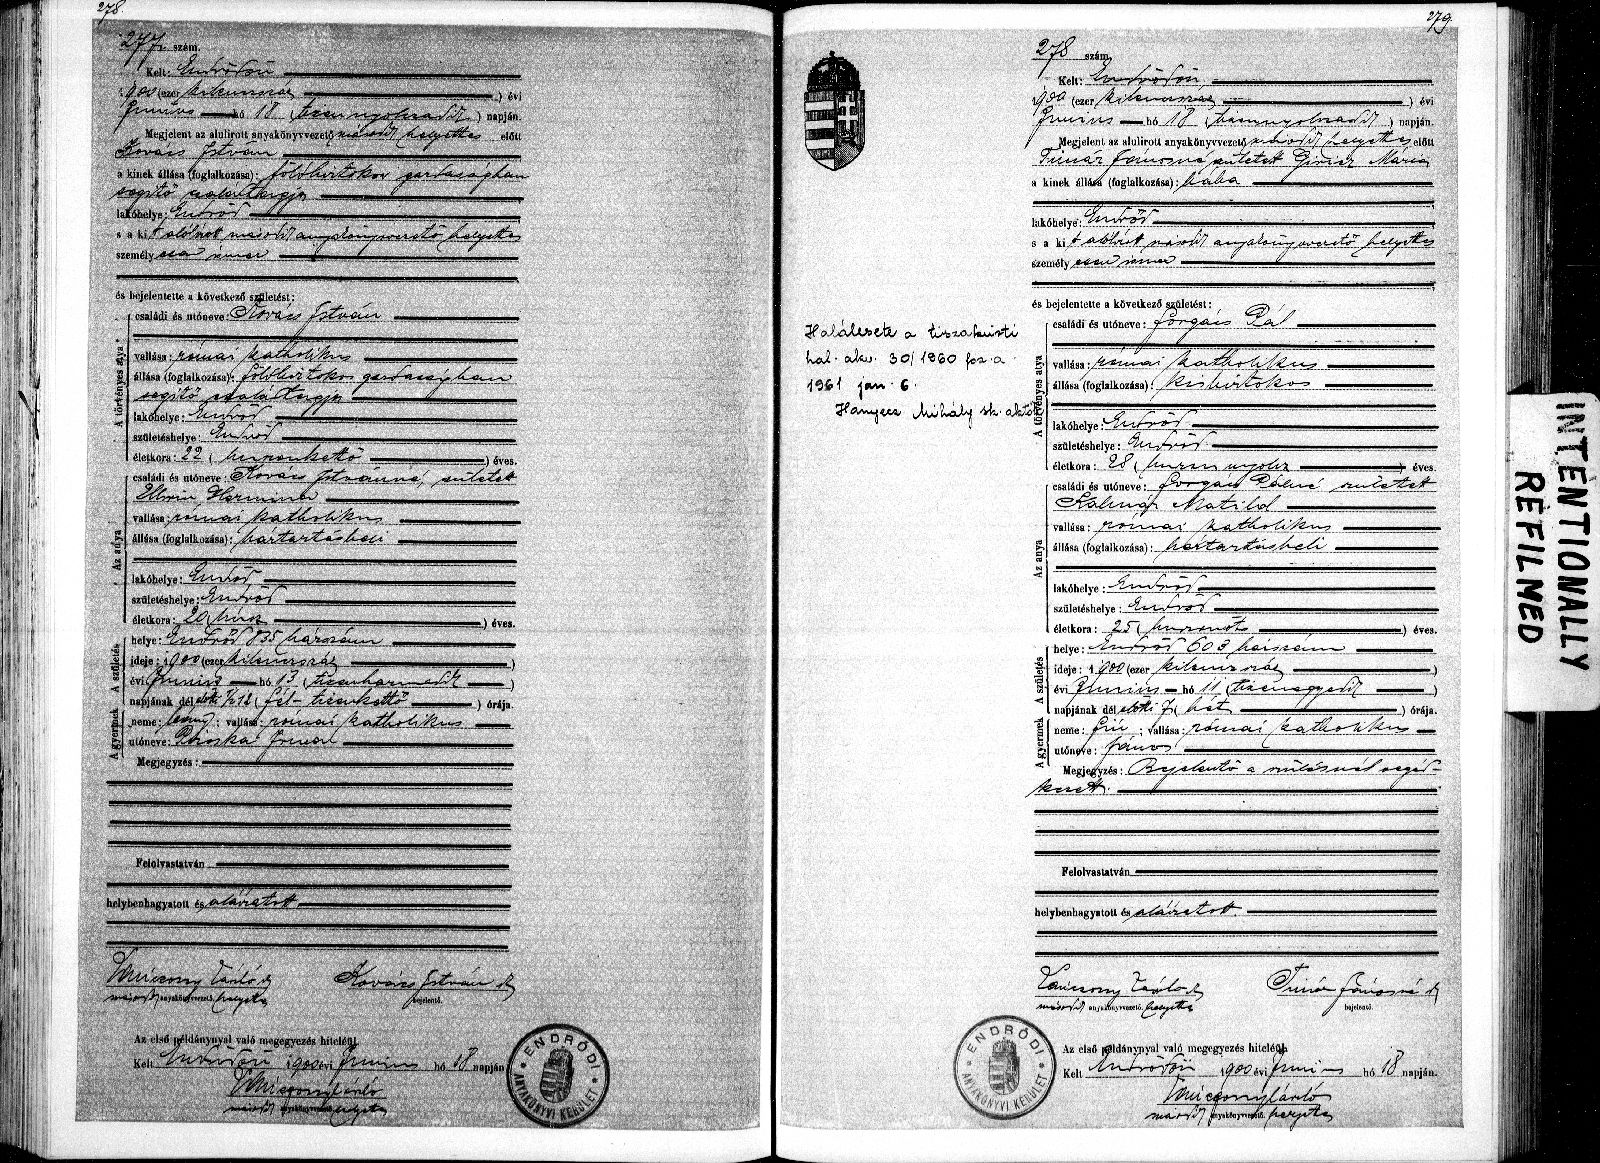 278.
277. szám.
Kelt: Endrődön
1900 (ezer kilencszáz) évi
Június hó 18 (tizennyolcadik) napján.
Megjelent az alulirott anyakönyvvezető második helyettes előtt
Kovács István
a kinek állása (foglalkozása): földbirtokos gazdaságban
segítő családtagja
lakóhelye: Endrőd
s a kit alólírt második anyakönyvvezető helyettes
személyesen ismer
és bejelentette a következő születést:
A törvényes atya
családi és utóneve: Kovács István
vallása: római katholikus
állása (foglalkozása): földbirtokos gazdaságban
segítő családtagja
lakóhelye: Endrőd
születéshelye: Endrőd
életkora: 22 (huszonkettő) éves.
Az anya
családi és utóneve: Kovács Istvánné, született
Hermina
vallása: római katholikus
állása (foglalkozása): háztartásbeli
lakóhelye: Endrőd
születéshelye: Endrőd
életkora: 20 (húsz) éves.
A születés
helye: Endrőd 835 házszám
ideje: 1900 (ezer kilencszáz)
évi Június hó 13 (tizenharmadik)
napjának délelőtti 1/2 12 (fél-tizenkettő) órája.
A gyermek
neme: leány; vallása: római katholikus
utóneve: Piroska
Megjegyzés:
Felolvastatván
helybenhagyatott és aláíratott
Kovács István sk
második anyakönyvvezető. helyettes
bejelentő.
Az első példánynyal való megegyezés hiteléül
Kelt Endrődön 1900 évi Június hó 18 napján
második anyakönyvvezető helyettes
ENDRŐDI ANYAKÖNYVI KERÜLET
279.
278 szám
Kelt: Endrődön
1900 (ezer kilencszáz) évi
Június hó 18 (tizennyolcadik) napján.
Megjelent az alulirott anyakönyvvezető második helyettes előtt
Tímár Jánosné született Mária
a kinek állása (foglalkozása): bába
lakóhelye: Endrőd
s a kit alólírt második anyakönyvvezető helyettes
személyesen ismer
és bejelentette a következő születést:
A törvényes atya
családi és utóneve: Forgács Pál
vallása: római katholikus
állása (foglalkozása): kisbirtokos
lakóhelye: Endrőd
születéshelye: Endrőd
életkora: 28 (huszonnyolc) éves.
Az anya
családi és utóneve: Forgács Pálné született
Kalmár Matild
vallása: római katholikus
állása (foglalkozása): háztartásbeli
lakóhelye: Endrőd
születéshelye: Endrőd
életkora: 25 (huszonöt) éves.
A születés
helye: Endrőd 603 házszám
ideje: 1900 (ezer kilencszáz)
évi Június hó 11 (tizenegyedik)
napjának délelőtti 7 (hét) órája.
A gyermek
neme: fiú; vallása: római katholikus
utóneve: János
Megjegyzés: Bejelentő a szülésnél segéd-
kezett.
Felolvastatván
helybenhagyatott és aláíratott.
Tímár Jánosné sk
második anyakönyvvezető. helyettes
bejelentő.
Az első példánynyal való megegyezés hiteléül
Kelt Endrődön 1900 évi Június hó 18 napján.
második anyakönyvvezető. helyettes
ENDRŐDI ANYAKÖNYVI KERÜLET
Halálesete a tiszakürti
hal. akv. 30/1960 fsz. a
1961 jan 6.
Hanyecz Mihály sk.
INTENTIONALLY
REFILMED